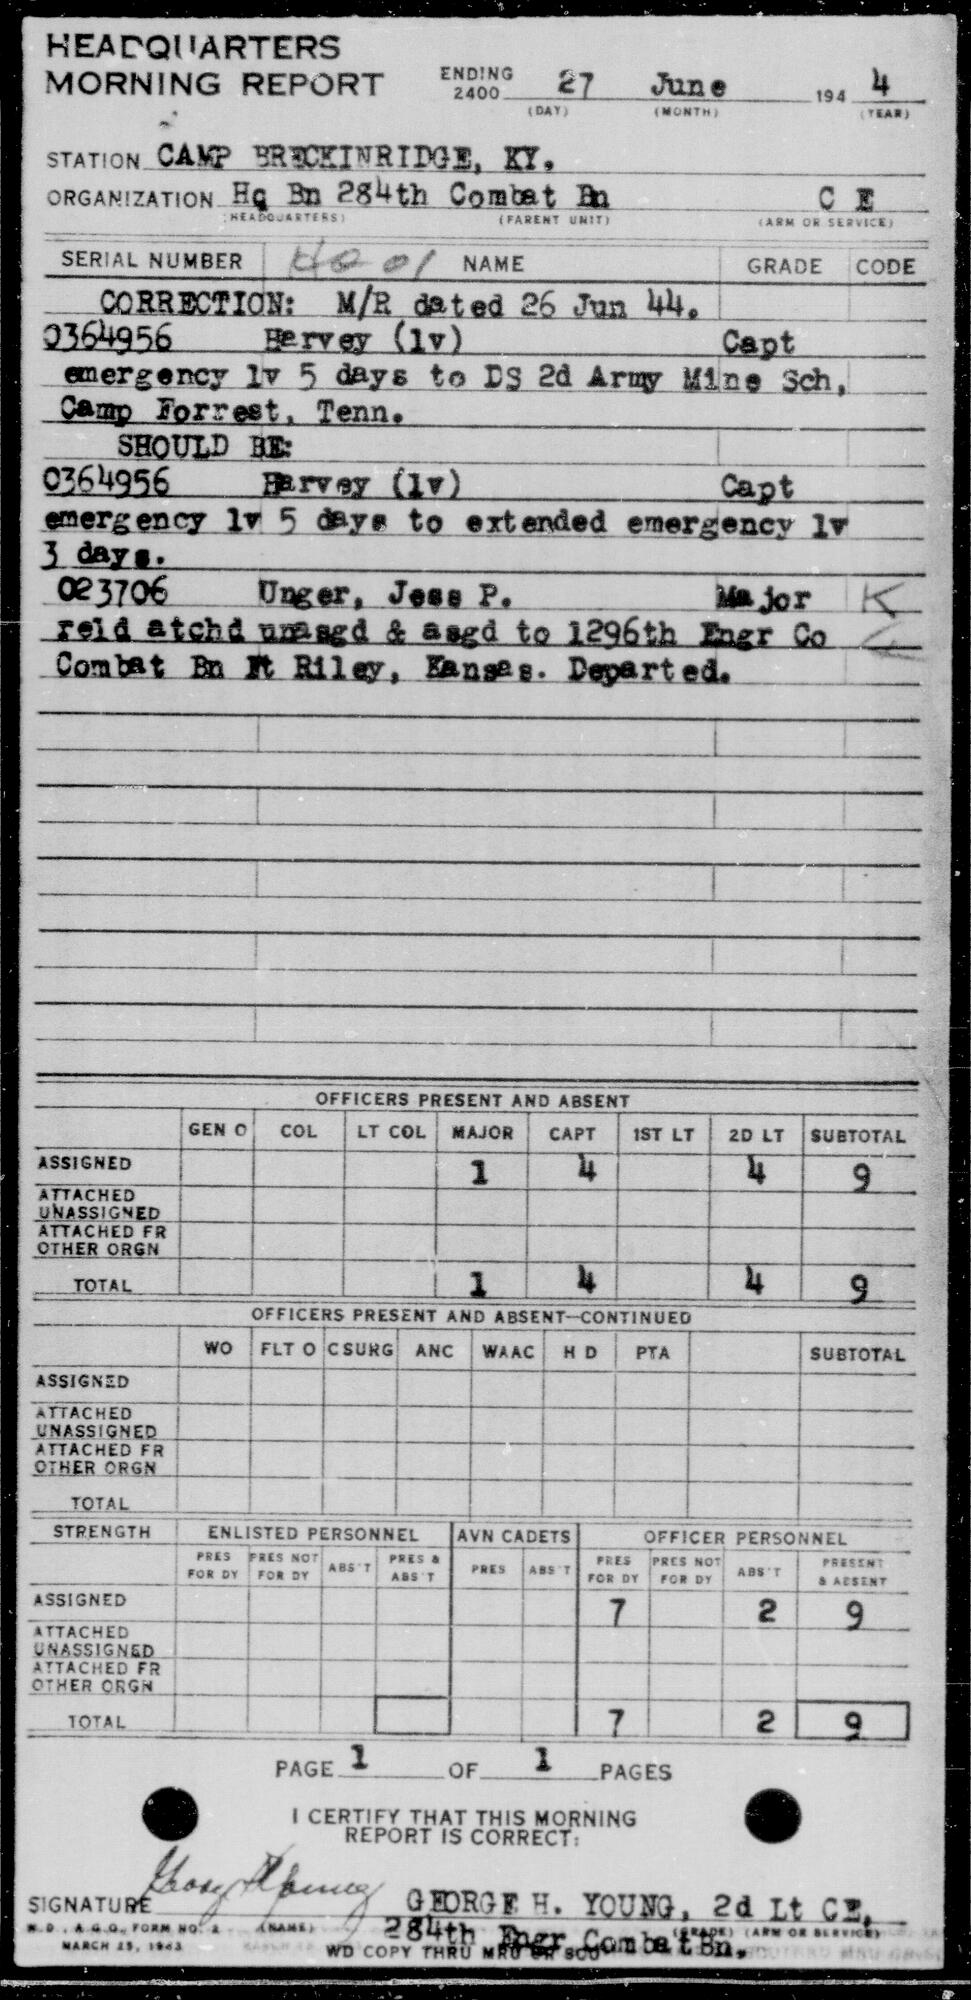 HEADQUARTERS
MORNING REPORT ENDING 2400 27 June 194 4
(DAY) (MONTH) (YEAR)
STATION CAMP BRECKINRIDGE, KY.
ORGANIZATION Hq Bn 284th Combat Bn C E
(HEADQUARTERS) (PARENT UNIT) (ARM OR SERVICE)
SERIAL NUMBER NAME GRADE CODE
CORRECTION: M/R dated 26 Jun 44.
0364956 Harvey (lv) Capt
emergency lv 5 days to DS 2d Army Mine Sch,
Camp Forrest, Tenn.
SHOULD BE:
0364956 Harvey (lv) Capt
emergency lv 5 days to extended emergency lv
3 days.
023706 Unger, Jess P. Major K
reld atchd unasgd & asgd to 1296th Engr Co
Combat Bn Ft Riley, Kansas. Departed.
OFFICERS PRESENT AND ABSENT
GEN O COL LT COL MAJOR CAPT 1ST LT 2D LT SUBTOTAL
ASSIGNED 1 4 4 9
ATTACHED
UNASSIGNED
ATTACHED FR
OTHER ORGN
TOTAL 1 4 4 9
OFFICERS PRESENT AND ABSENT—CONTINUED
WO FLT O C SURG ANC WAAC H D PTA SUBTOTAL
ASSIGNED
ATTACHED
UNASSIGNED
ATTACHED FR
OTHER ORGN
TOTAL
STRENGTH ENLISTED PERSONNEL AVN CADETS OFFICER PERSONNEL
PRES FOR DY PRES NOT FOR DY ABS'T PRES & ABS'T PRES ABS'T PRES FOR DY PRES NOT FOR DY ABS'T PRESENT & ABSENT
ASSIGNED 7 2 9
ATTACHED
UNASSIGNED
ATTACHED FR
OTHER ORGN
TOTAL 7 2 9
PAGE 1 OF 1 PAGES
I CERTIFY THAT THIS MORNING
REPORT IS CORRECT:
SIGNATURE George H Young GEORGE H. YOUNG, 2d Lt CE,
W.D., A.G.O. FORM NO. 2 (NAME) (GRADE) (ARM OR SERVICE)
284th Engr Combat Bn.
MARCH 25, 1943 WD COPY THRU MRU OR SCU